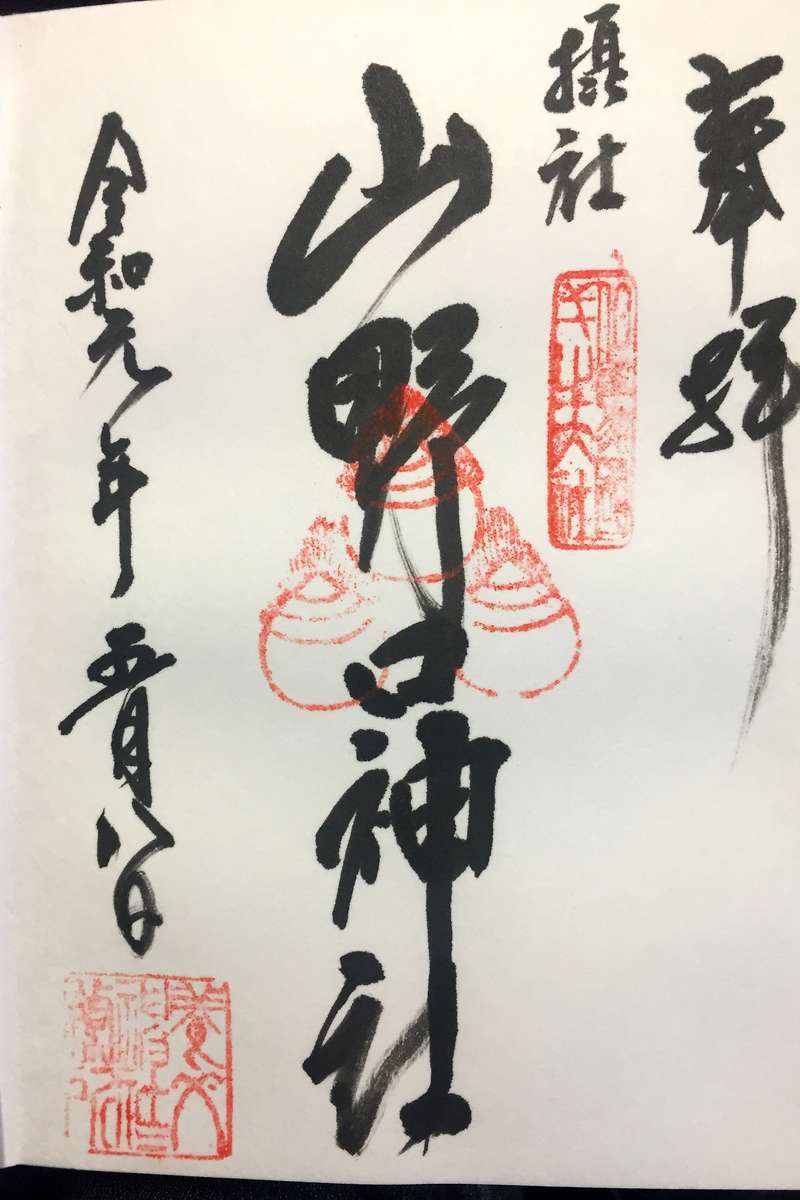 奉拝
摂社
山野口神社
令和元年五月八日